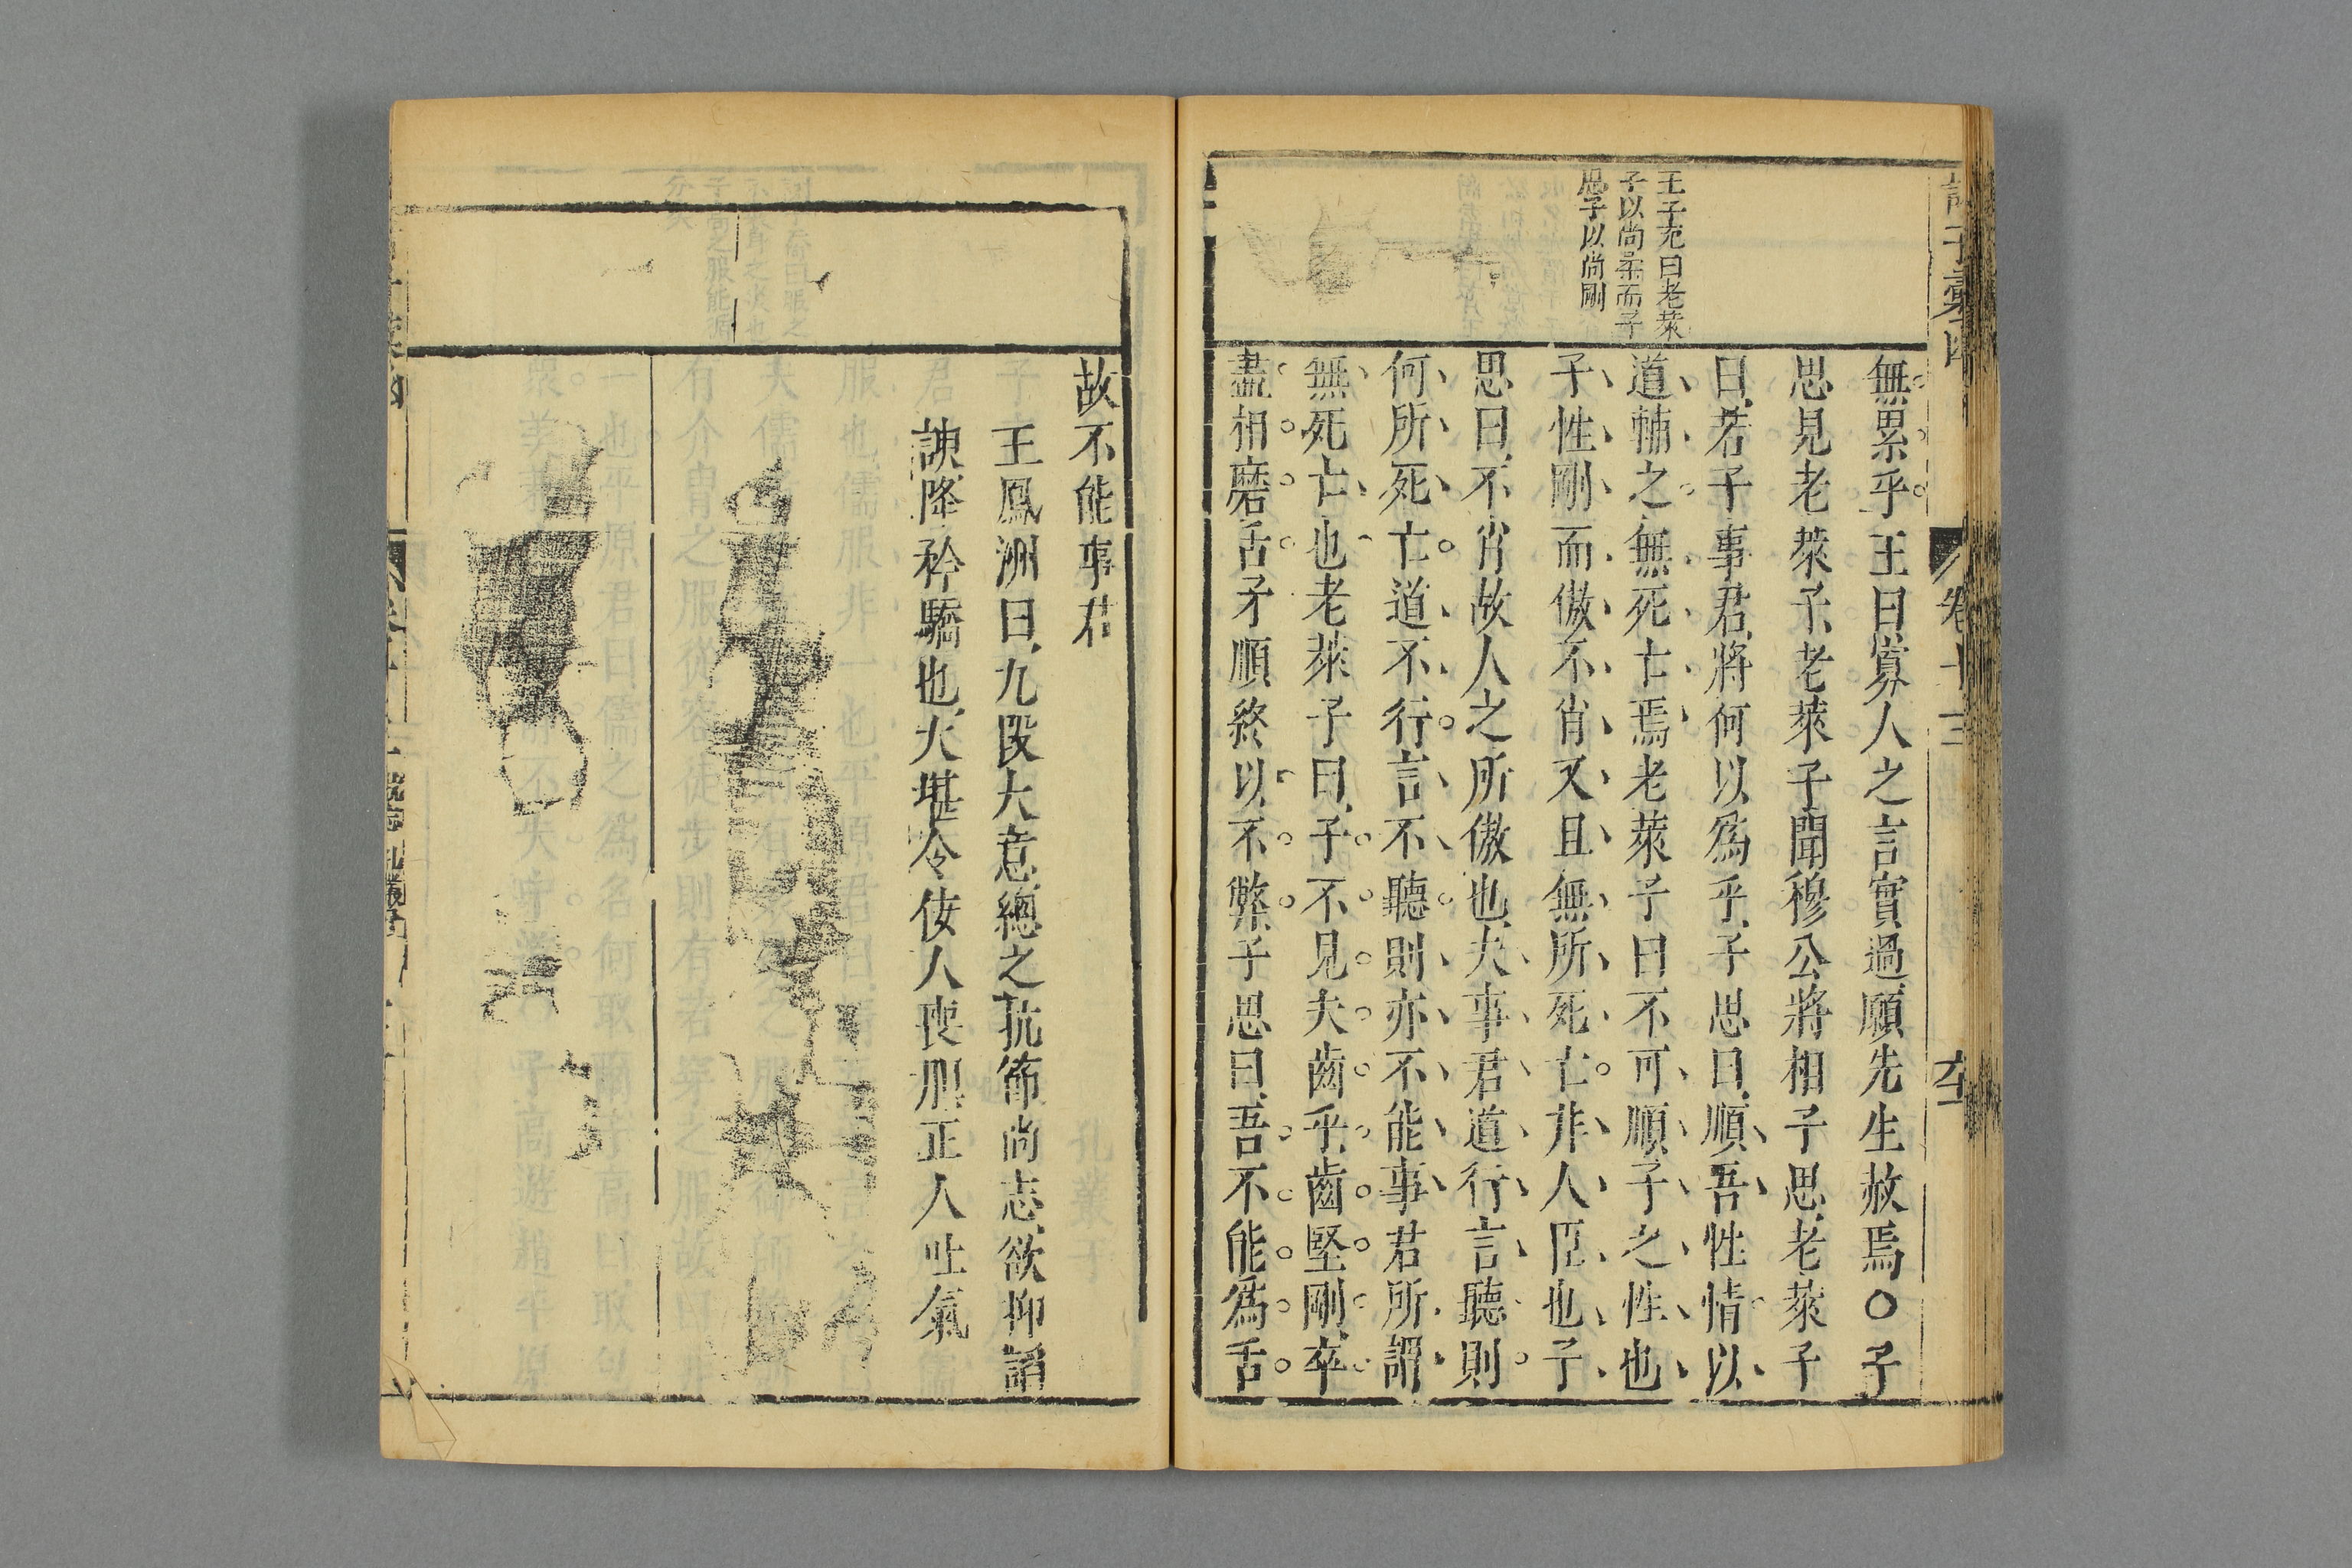 王子充曰老萊
子以尚柔而子
思子以尚剛
無累乎王曰寡人之言實過願先生赦焉〇子
思見老萊子老萊子聞穆公將相子思老萊子
曰若子事君將何以爲乎子思曰順吾性情以
道輔之無死亡焉老萊子曰不可順子之性也
子性剛而傲不肖又且無所死亡非人臣也子
思曰不肖故人之所傲也夫事君道行言聽則
何所死亡道不行言不聽則亦不能事君所謂
無死亡也老萊子曰子不見夫齒乎齒堅剛卒
盡相磨舌柔順終以不弊子思曰吾不能爲舌
卷十三
故不能事君
王鳳洲曰九段大意總之抗節尚志欲抑諂
諛降矜驕也大堪令佞人喪胆正人吐氣